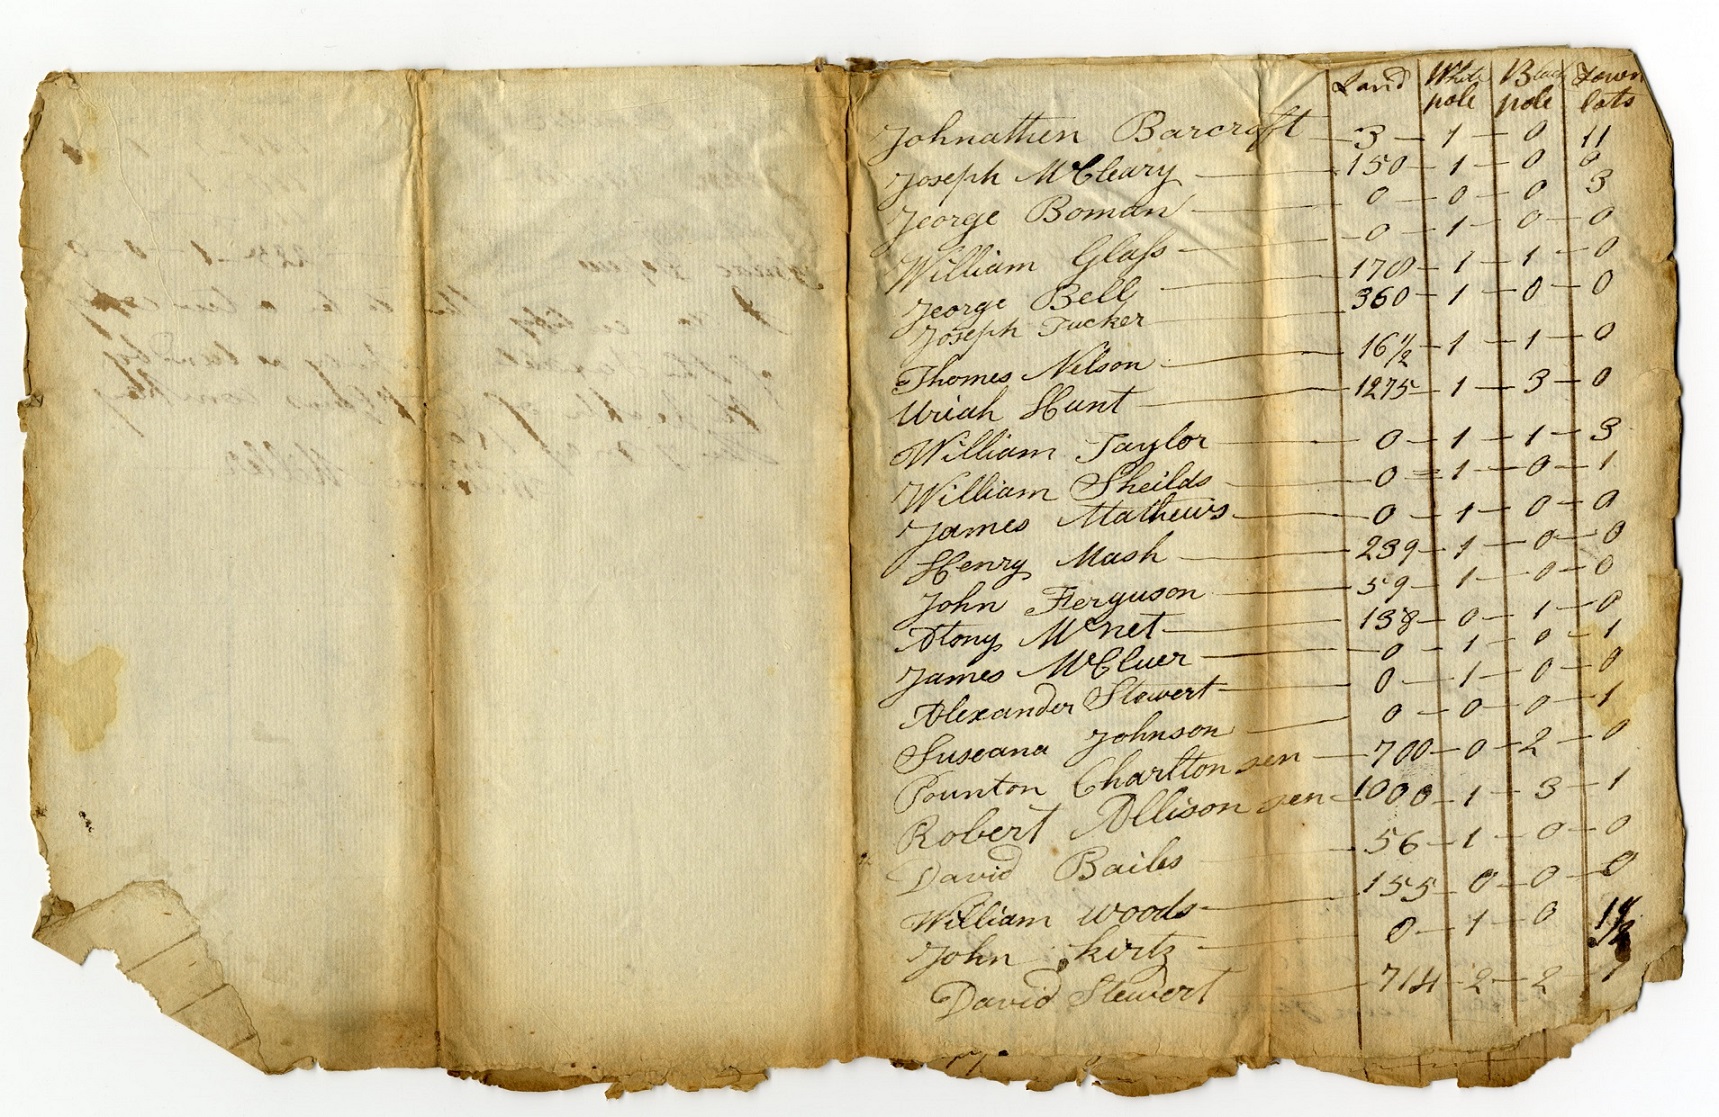 Land White pole Black pole Town lots
Johnathen Barcroft 3 – 1 – 0 11
Joseph McCleary 150 – 1 – 0 0
Jeorge Boman 0 – 0 – 0 3
William Glass 0 – 1 – 0 – 0
Jeorge Bell 1700 – 1 – 1 – 0
Joseph Tucker 360 – 1 – 0 – 0
Thomes Nelson 16 1/2 – 1 – 1 – 0
Uriah Hunt 1275 – 1 – 3 – 0
William Taylor 0 – 1 – 1 – 3
William Sheilds 0 – 1 – 0 – 1
James Mathews 0 – 1 – 0 – 0
Henry Mash 239 – 1 – 0 – 0
John Ferguson 59 – 1 – 0 – 0
Atony McNet 138 – 0 – 1 – 0
James McCluer 0 – 1 – 0 – 1
Alexander Stewert 0 – 1 – 0 – 0
Suseana Johnson 0 – 0 – 0 – 1
Pounton Charlton sen 700 – 0 – 2 – 0
Robert Allison sen 1000 – 1 – 3 – 1
David Bailes 56 – 1 – 0 – 0
William woods 155 – 0 – 0 – 0
John kirtz 0 – 1 – 0
David Stewert 714 – 2 – 2 – 1